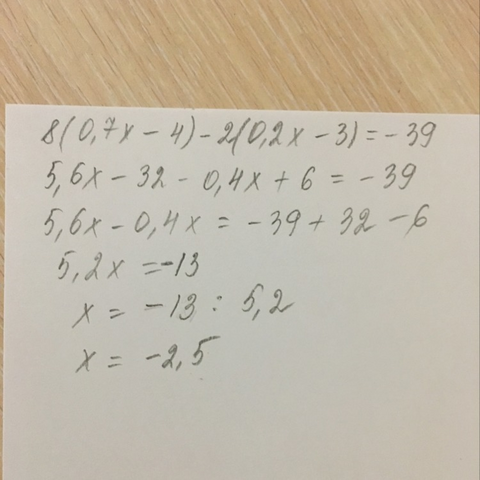 8(0,7x - 4) - 2(0,2x - 3) = - 39
5,6x - 32 - 0,4x + 6 = - 39
5,6x - 0,4x = - 39 + 32 - 6
5,2x = -13
x = - 13 : 5,2
x = - 2,5